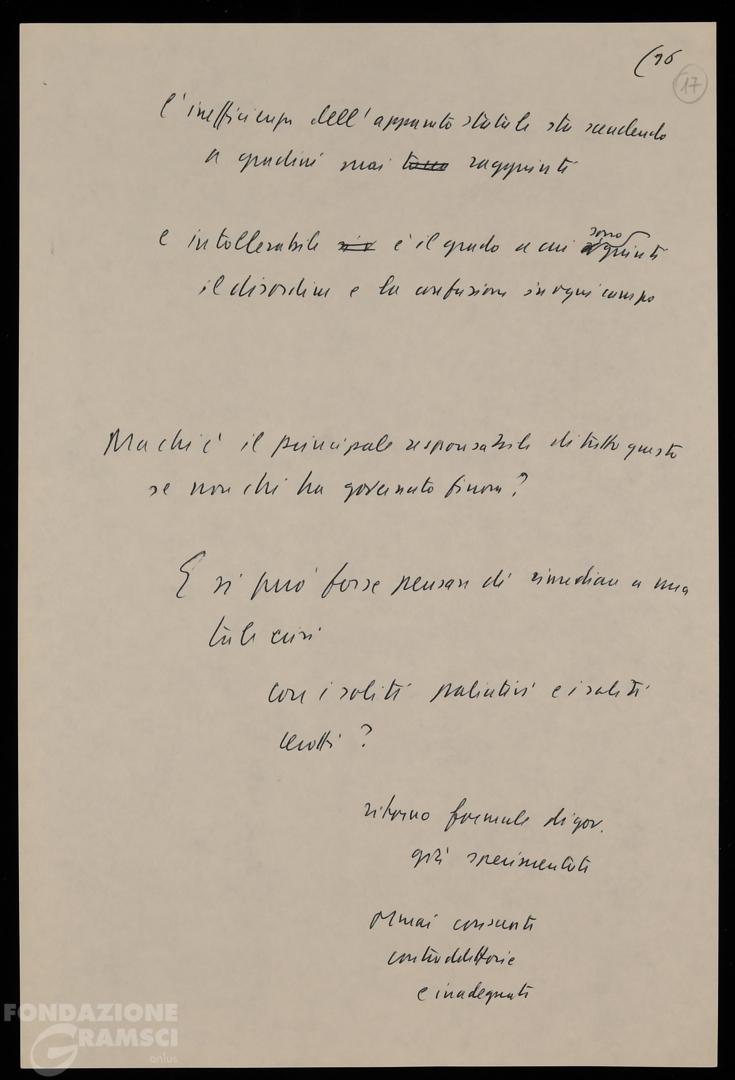 (16
17
l'inefficienza dell'apparato statale sta scendendo
a gradini mai raggiunti
e intollerabile è il grado a cui sono giunti
il disordine e la confusione in ogni campo
Ma chi è il principale responsabile di tutto questo
se non chi ha governato finora?
E si può forse pensare di rimediare a una
tale crisi
con i soliti palliativi e i soliti
cerotti?
ritorno formule di gov.
già sperimentate
ormai consunte
contraddittorie
e inadeguate
FONDAZIONE
GRAMSCI
onlus